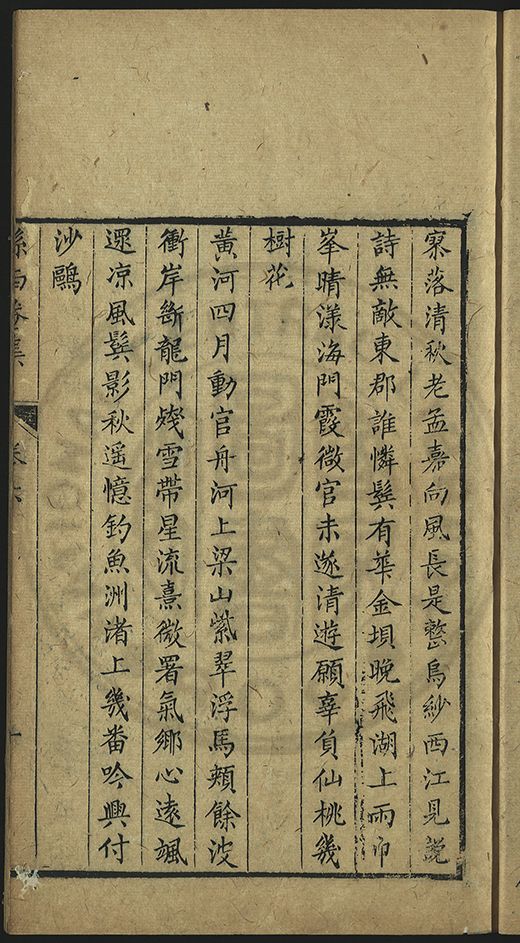 寥落清秋老孟嘉向風長是整烏紗西江見說
詩無敵東郡誰憐鬂有華金垻晚飛湖上雨卭
峯晴漾海門霞微官未遂清遊願辜負仙桃幾
樹花
黃河四月動官舟河上梁山紫翠浮馬頰餘波
衝岸斷龍門殘雪帶星流熹微署氣鄉心遠颯
遝凉風鬂影秋遥憶釣魚洲渚上幾畨吟興付
沙鷗